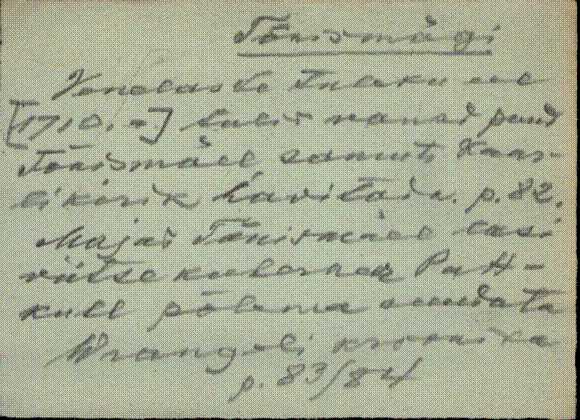 Tõnismägi
Venelaste tuleku eel
[1710.a] lasti vanad puud
Tõnismäel, samuti Kaar-
li kirik hävitada. p. 82.
Majad Tõnismäel lasi
viitsekuberner Pat-
kull põlema süüdata
Wrangeli kroonika
p. 83/84